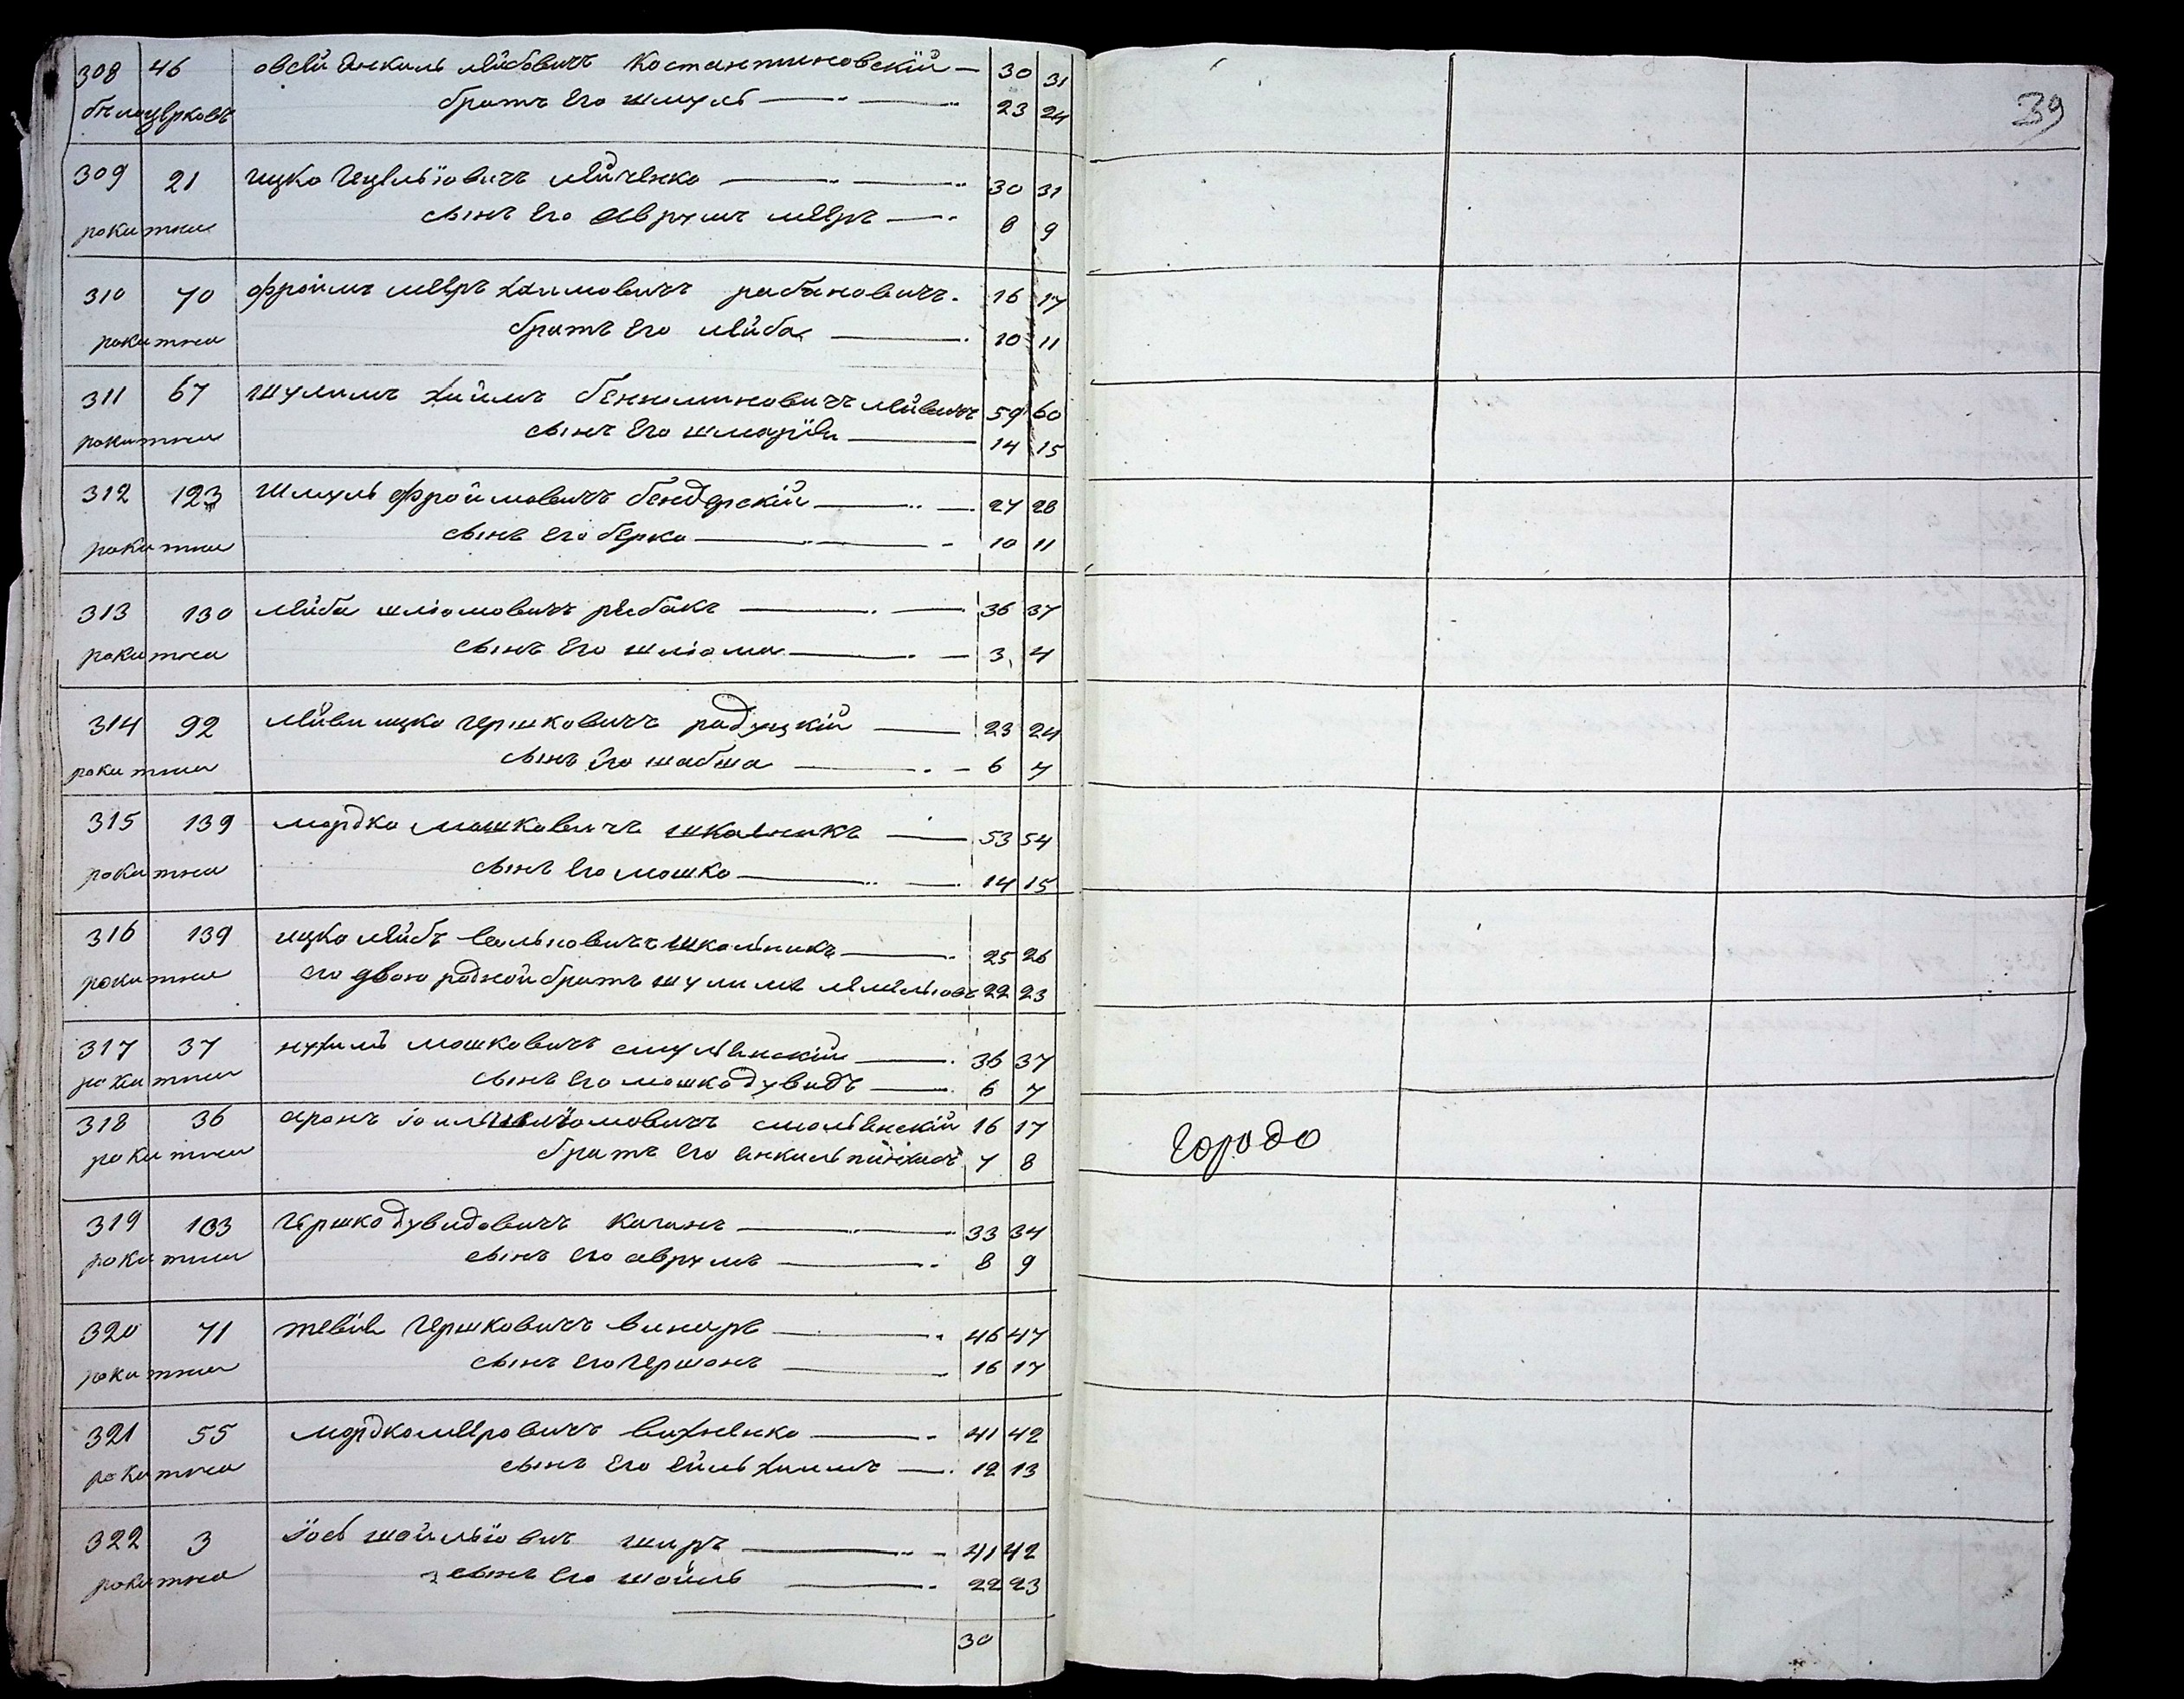 308 46 овсій Янкиль Лейбовичъ Костантиновскій — 30 31
бѣлоцерковъ братъ Его шмуль — — 23 24
309 21 ицко Гецельіовичъ Лейченко — — 30 31
рокитна сынъ Его Аврумъ мееръ — 8 9
310 70 фроимъ мееръ хаимовичъ рабиновичъ. 16 17
рокитна братъ Его Лейба — 10 11
311 67 шулимъ хаимъ бенюминовичъ 59 60
рокитна сынъ Его 14 15
312 123 Шмуль фроимовичъ бендерскій — 27 28
рокитна сынъ Его берко — — 10 11
313 130 Лейба шліомовичъ рыбакъ — — 36 37
рокитна сынъ Его шліома — — 3 4
314 92 Лейви ицко гершковичъ радуцкій — 23 24
рокитна сынъ Его шабша — — 6 7
315 139 мордко мошковичъ школникъ — 53 54
рокитна сынъ Его мошко — — 14 15
316 139 ицко Лейбъ вольковичъ школникъ — 25 26
рокитна Его двою родной братъ шулимъ 22 23
317 37 нухимъ мошковичъ смулянскій — 36 37
рокитна сынъ Его мошко дувидъ — 6 7
318 36 аронъ іоиль шліомовичъ смолянскій 16 17
рокитна братъ Его янкиль пинхасъ 7 8
319 103 гершко дувидовичъ каганъ — 33 34
рокитна сынъ Его аврумъ — 8 9
320 71 тевель гершковичъ винаръ — 46 47
рокитна сынъ Его гершонъ — 16 17
321 55 мордко меровичъ вихненко — 41 42
рокитна сынъ Его хаимъ — 12 13
322 3 іось шойльіовичъ широ — — 41 42
рокитна сынъ Его шойль — 22 23
30
39
городо